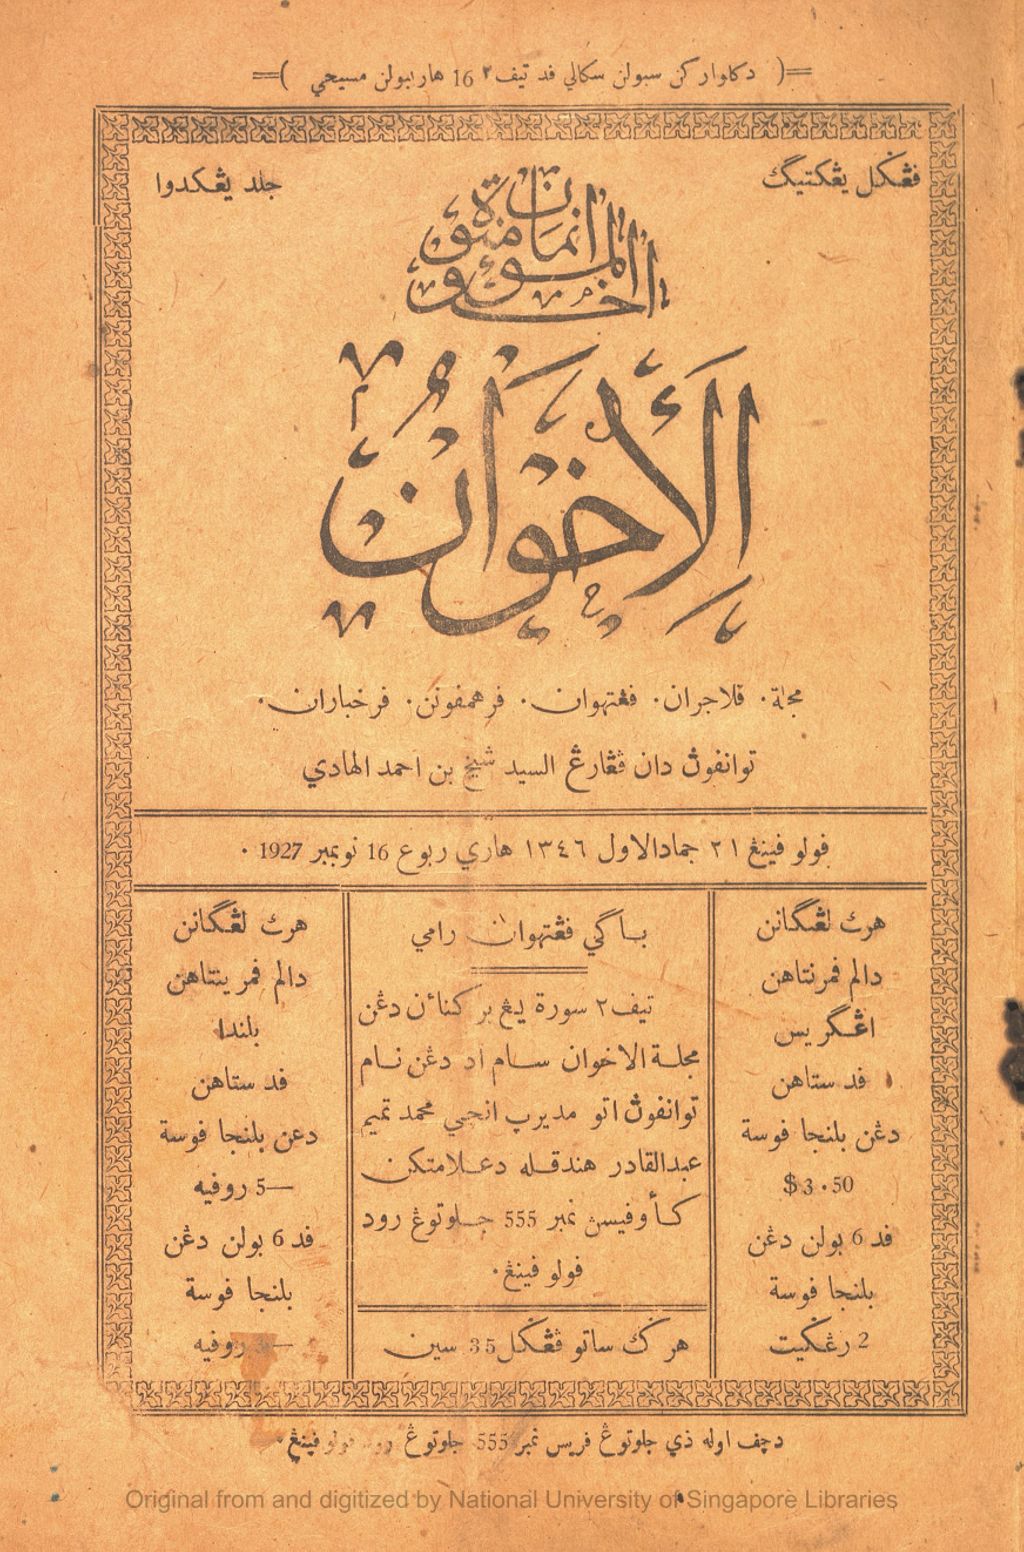 =( دكلواركن سبولن سكالي فد تيف٢ 16 هاربولن مسيحي )=
ڤڠكل يڠكتيݢ
جلد يڠكدوا
انما المؤمنون اخوة
الإخوان
مجلة. ڤلاجران. ڤڠتهوان. ڤرهمفونن. ڤرخبارن.
توانفوڽ دان ڤڠارڠ السيد شيخ بن احمد الهادي
فولو فينڠ ٢١ جمادالاول ١٣٤٦ هاري ربوع 16 نوبمبر 1927 .
هرݢ لڠݢانن
دالم فمرنتاهن
اڠݢريس
فد ستاهن
دڠن بلنجا فوسة
$3.50
فد 6 بولن دڠن
بلنجا فوسة
2 رڠݢيت
باݢي فڠتهوان رامي
تيف٢ سورة يڠ بركنائن دڠن
مجلة الاخوان سام اد دڠن نام
توانفوڽ اتو مدير انچي محمد تميم
عبدالقادر هندقله دعلامتكن
كأوفيسڽ نمبر 555 جلوتوڠ رود
فولو فينڠ.
هرݢ ساتو ڤڠكل 35 سين
هرݢ لڠݢانن
دالم فمرينتاهن
بلندا
فد ستاهن
دعن بلنجا فوسة
—5 روفيه
فد 6 بولن دڠن
بلنجا فوسة
روفيه
دچف اوله ذي جلوتوڠ فريس نمبر 555 جلوتوڠ رود فولو فينڠ.
Original from and digitized by National University of Singapore Libraries